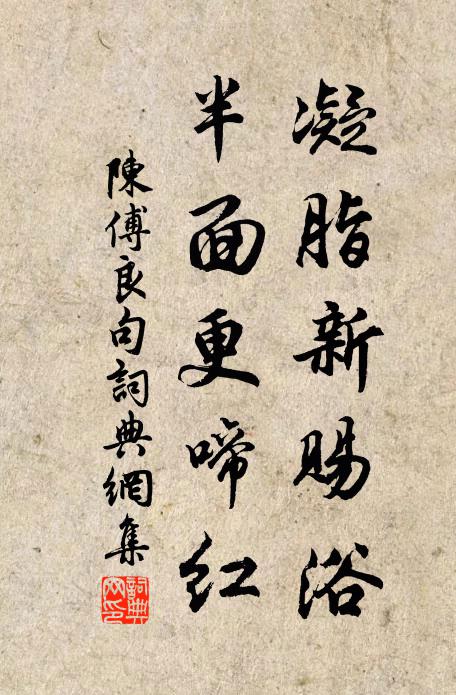 凝脂新賜浴
半面更啼紅
陳傅良句詞典網集
詞典网印